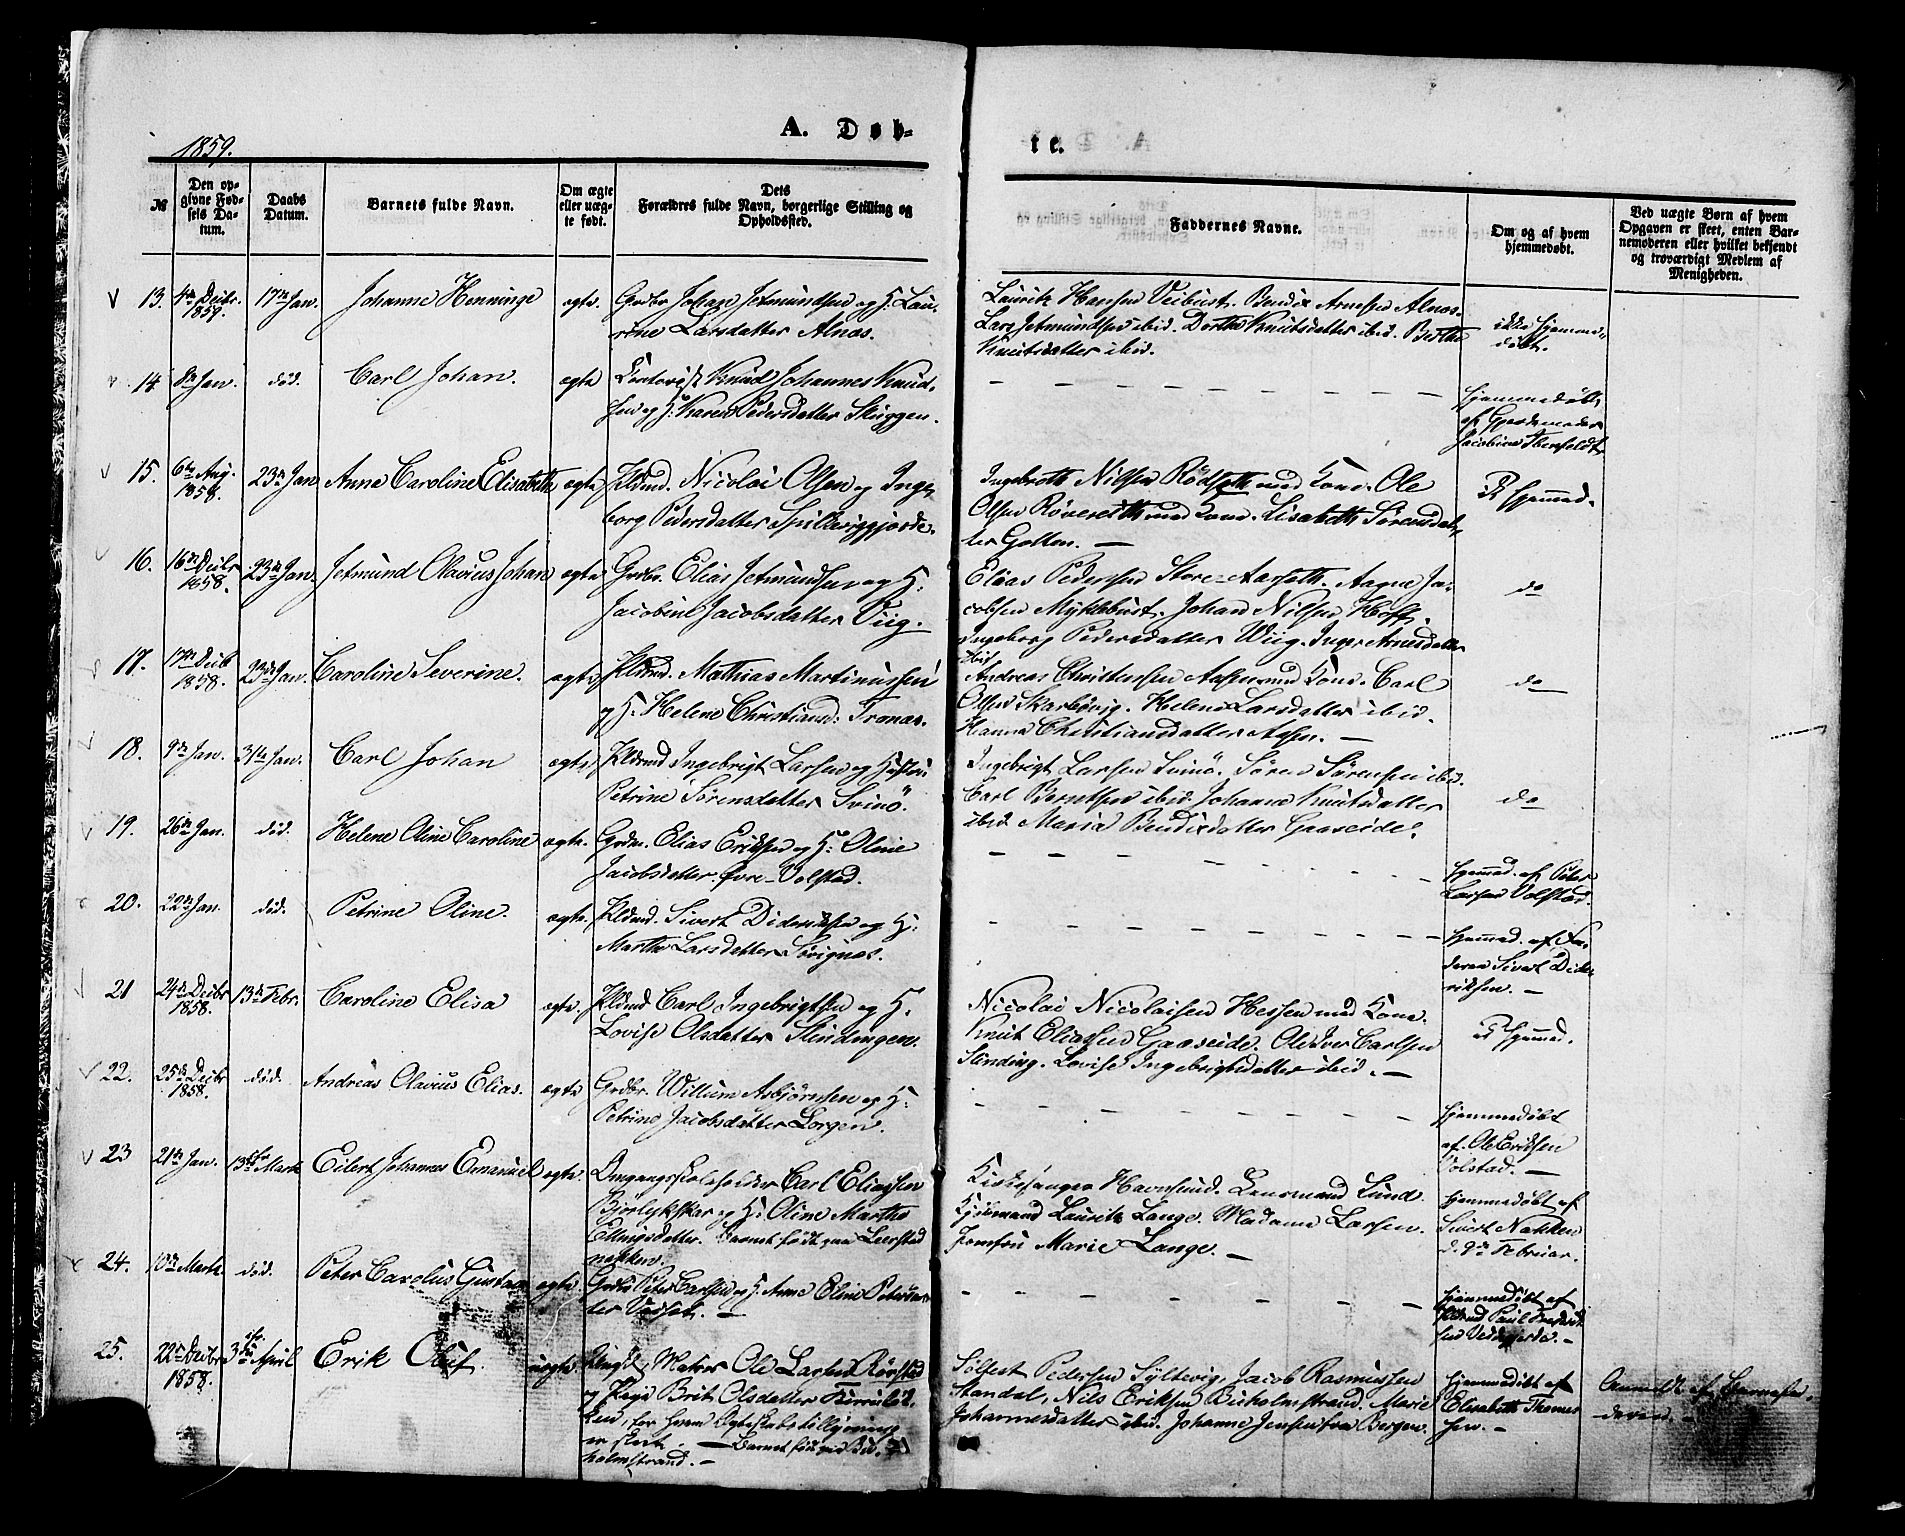 1859.
A. Døb-
te.
№
Den op-
givne Fød-
sels Da-
tum.
Daabs
Datum.
Barnets fulde Navn.
Om ægte
eller uæg-
te født.
Dets
Forældres fulde Navn, borgerlige Stilling og
Opholdssted.
Faddernes Navne.
Om og af hvem
hjemmedøbt.
Ved uægte Børn af hvem
Opgaven er skeet, enten Bar-
nemoderen eller hvilket bekjendt
og troværdigt Medlem af
Menigheden.
13. 4de Decbr. 1859. 17de Jan. Johanne Henninge ægte. Grdbr Johan Jetmundsen og H. Lau-
rine Larsdatter Alnæs.
Lauritz Hansen Veibust. Bendix Arnesen Alnæs.
Lars Jetmundsen ibid. Dorthe Knutsdatter ibid. Berthe
Knutsdatter ibid.
ikke hjemme-
døbt.
14 8de Jan. død. Carl Johan. ægte Knud Johannes Knud-
sen og H. Karen Pedersdatter Skuggen.
hjemmedøbt
af Gjordemoder
Jacobine
15. 6te Aug. 1858. 23de Jan Anne Caroline Elisabeth ægte Pldmd. Nicolai Olsen og Inge-
borg Pedersdatter
Ingebreth Nilsen Rödseth med Kone. Ole
Olsen med Kone. Lisabeth Sörensdat-
ter Golten.
hjemmed.
16. 16de Decbr 1858. 23de Jan. Jetmund Olavius Johan ægte Grdbr. Elias Jetmundsen og H.
Jacobine Jacobsdatter Viig.
Elias Pedersen Store-Aarseth. Aagne Ja-
cobsen Myklebust. Johan Nilsen Hoff.
Ingeborg Pedersdatter Wiig. Inger Arnesdatter
ibid.
do
17. 17de Decb 1858. 23de Jan. Caroline Severine. ægte Pldmd. Mathias Martinussen
og H. Helene Christiansd: Tronæs.
Andreas Christensen Aasen med Kone. Carl
Olsen Skarbövig. Helene Larsdatter ibid.
Hanna Christiansdatter Aasen.
do
18. 9de Jan. 31te Jan. Carl Johan ægte Pldmd Ingebrigt Larsen og Hustru
Petrine Sörensdatter Svinö.
Ingebrigt Larsen Svinö. Sören Sörensen ibid.
Carl Berntsen ibid. Johanne Knutsdatter
ibid. Maria Bendixdatter Gaaseide.
do
19. 26de Jan. død. Helene Oline Caroline ægte. Grdm. Elias Eriksen og H. Oline
Jacobsdatter Övre-Volstad.
hjemmed. af Peter
Larsen Volstad.
20. 22de Jan. død. Petrine Oline. ægte. Pldmd. Sivert Dideriksen og H.
Marthe Larsdatter Sövignæs.
hjemmed. af Fa-
deren Sivert Dide-
riksen.
21 24de Decbr 1858. 13de Febr. Caroline Elisa ægte. Pldmd Carl Ingebrigtsen og H.
Lovise Olsdatter Slindingen.
Nicolai Nicolaisen Hessen med Kone.
Knut Eliassen Gaaseide. Ole Iver Carlsen
Slinding. Lovise Ingebrigtsdatter ibid.
hjemmed.
22. 25de Decbr 1858. død. Andreas Olavius Elias. ægte Grdbr. Willum Asbjörnsen og H.
Petrine Jacobsdatter Lorgen.
hjemmedöbt
af Ole Eriksen
Volstad.
23 21de Jan. 13de Marts Eilert Johannes Emanuel ægte. Omgangsskoleholder Carl Eliassen
Björlykskar og H. Oline Marthe
Ellingsdatter. Barnet födt paa Leerstad
nakken.
Kirkesanger Havnsund. Lensmand Lund.
Lauritz Lange. Madame Larsen.
Jomfru Marie Lange.
hjemmedöbt af
Sivert Nakken
d. 9de Februar.
24. 10de Marts død. Peter Carolus Gustav ægte Grdbr Peter Carlsen og H. Anne Oline Petersdat-
ter
hjemmedöbt af
Pldmd Paul Frederik-
sen Veddegjerde.
25. 22de Decbr 1858. 3die April Erik Oluf. uægte. Matros Ole Larsen
og Pige Brit Olsdatter
for hvem Ægteskabstillysning
er skeet. Barnet födt paa Bue-
holmstrand.
Pedersen Syltevig, Jacob Rasmussen
Standal, Nils Eriksen Bueholmstrand. Marie
Johannesdatter ibid. Johanne Jensen fra Bergen.
hjemmedöbt af
Elisabeth Thomas-
sen.
Anmeldt af Barnefa-
deren.